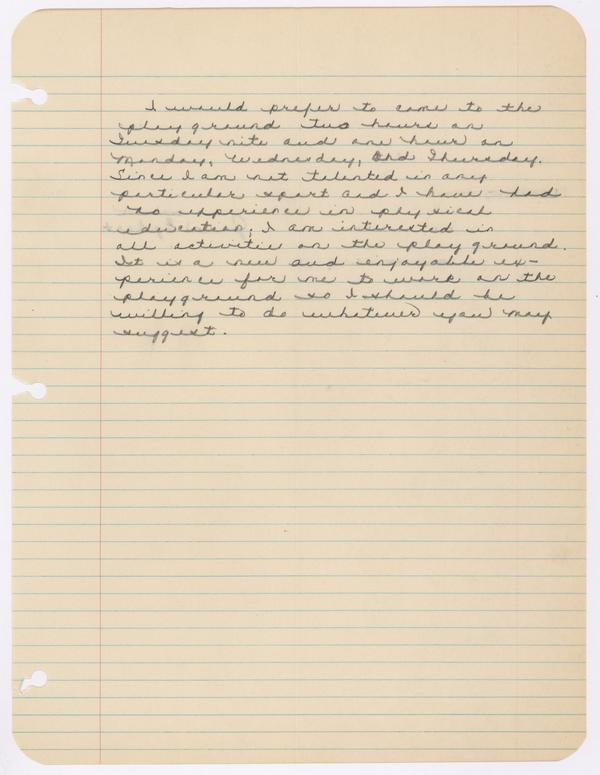 I would prefer to come to the
playground two hours on
Tuesday nite and one hour on
Monday, Wednesday, and Thursday.
Since I am not talented in any
particular sport and I have had
no experience in physical
education, I am interested in
all activities on the playground.
It is a new and enjoyable ex-
perience for me to work on the
playground so I should be
willing to do whatever you may
suggest.